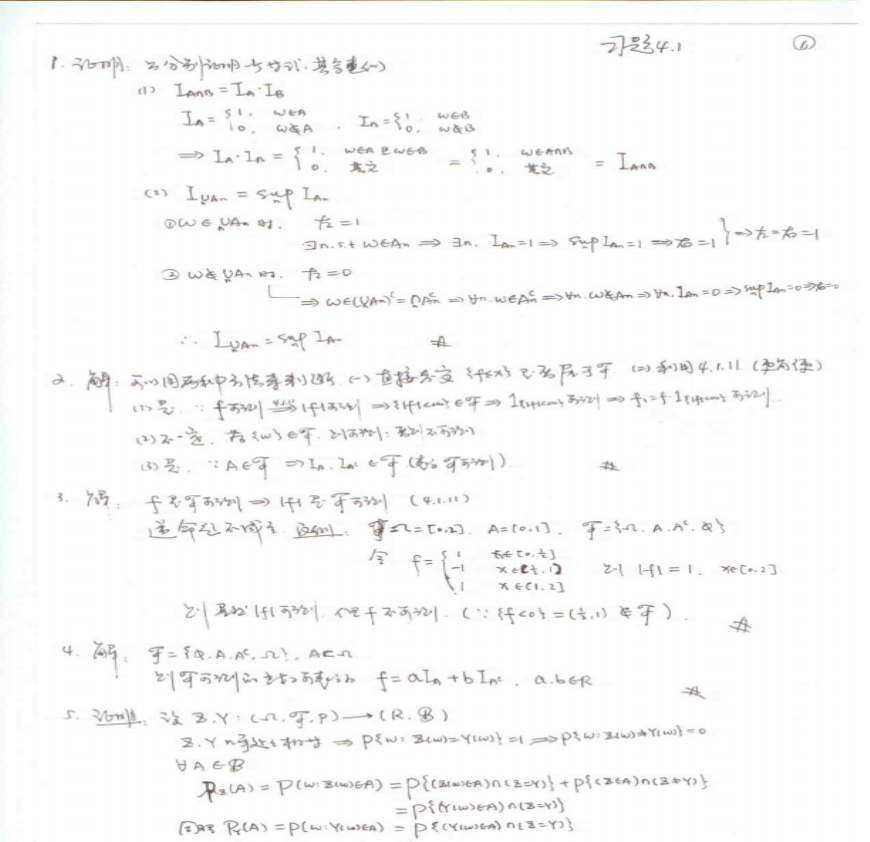 习题4.1 ⑥
1. 证明: 分别证明
(1) I_{A∩B} = I_A·I_B
I_A = { 1, ω∈A 0, ω∉A , I_B = { 1, ω∈B 0, ω∉B
⇒ I_A·I_B = { 1, ω∈A 且 ω∈B 0, 其它 = { 1, ω∈A∩B 0, 其它 = I_{A∩B}
(2) I_{∪An} = sup I_{An}
① ω∈∪An 时, 左=1
∃n. s.t ω∈An ⇒ ∃n. I_{An}=1 ⇒ sup I_{An}=1 ⇒ 右=1 } ⇒ 左=右=1
② ω∉∪An 时, 左=0
⇒ ω∈(∪An)^c = ∩An^c ⇒ ∀n. ω∈An^c ⇒ ∀n. ω∉An ⇒ ∀n. I_{An}=0 ⇒ sup I_{An}=0 ⇒ 右=0
∴ I_{∪An} = sup I_{An} #
2. 解: 可以用两种方法来判断 (一) 直接 {f<x} 是否属于ℱ (二) 利用4.1.11
(1) 是. ∵ f可测 ⇒ |f|可测 ⇒ ∈ℱ ⇒ 可测 ⇒ 可测.
(2) 不一定, 若{ω}∈ℱ, 则可测; 否则不可测
(3) 是. ∵ A∈ℱ ⇒ I_A. I_{A^c} ∈ℱ (ℱ可测). #
3. 解: f是ℱ可测 ⇒ |f|是ℱ可测 (4.1.11)
逆命题不成立. 反例: Ω=[0,2], A=[0,1], ℱ={Ω, A, A^c, Φ}
令 f = { 1 x∈[0,½] -1 x∈(½,1) 1 x∈(1,2] 则 |f|=1, x∈[0,2]
则 |f|可测, 但f不可测. (∵ {f<0}=(½,1)∉ℱ). #
4. 解: ℱ={Φ, A, A^c, Ω}, A⊂Ω
则ℱ可测 f = aI_A + bI_{A^c}, a.b∈R #
5. 证明: 设 Z, Y: (Ω, ℱ, P) → (R, ℬ)
Z, Y 几乎处处相等 ⇒ P{ω: Z(ω)=Y(ω)}=1 ⇒ P{ω: Z(ω)≠Y(ω)}=0
∀A∈ℬ
P_Z(A) = P(ω: Z(ω)∈A) = P{(Z(ω)∈A)∩(Z=Y)} + P{(Z∈A)∩(Z≠Y)}
= P{(Y(ω)∈A)∩(Z=Y)}
同理 P_Y(A) = P(ω: Y(ω)∈A) = P{(Y(ω)∈A)∩(Z=Y)}